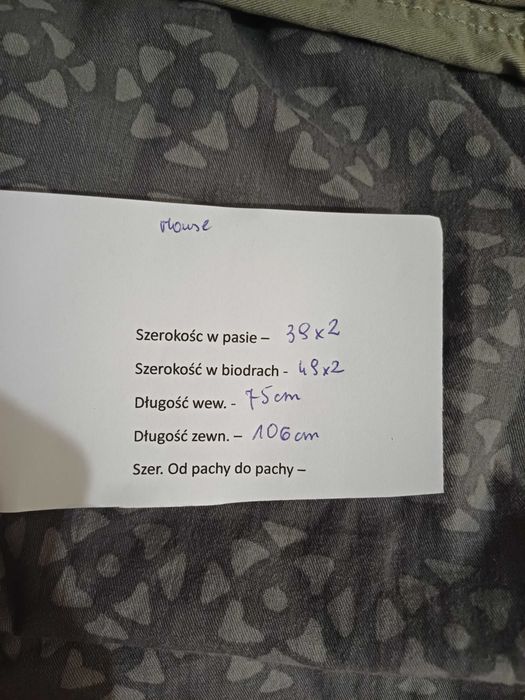 House
Szerokośc w pasie – 39x2
Szerokość w biodrach - 49x2
Długość wew. - 75cm
Długość zewn. – 106cm
Szer. Od pachy do pachy –